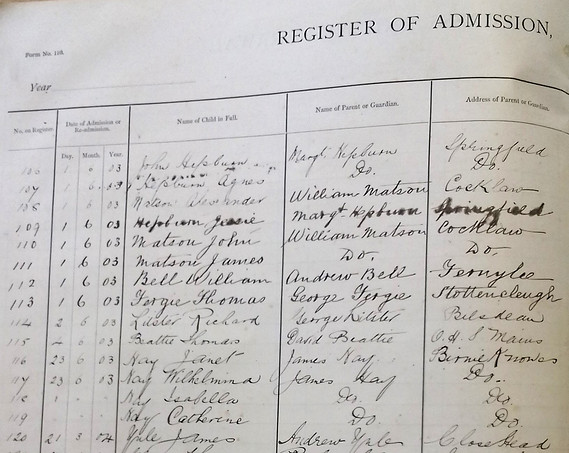 REGISTER OF ADMISSION,
Form No. 118.
Year
No. on Register. Date of Admission or Re-admission. Name of Child in Full. Name of Parent or Guardian. Address of Parent or Guardian.
Day. Month. Year.
106 1 6 03 John Hepburn Margt Hepburn Springfield
107 1 6 03 Hepburn Agnes Do. Do.
108 1 6 03 Matson Alexander William Matson Cocklaw
109 1 6 03 Hepburn Jessie Margt Hepburn Springfield
110 1 6 03 Matson John William Matson Cocklaw
111 1 6 03 Matson James Do. Do.
112 1 6 03 Bell William Andrew Bell Fernylea
113 1 6 03 Forgie Thomas George Forgie Stottencleugh
114 2 6 03 Lilster Richard George Lilster Bilsdean
115 4 6 03 Beattie Thomas David Beattie O. H. S Mains
116 23 6 03 Hay Janet James Hay Birnie Knowes
117 23 6 03 Hay Wilhelmina James Hay Do.
118 1 Hay Isabella Do. Do.
119 Hay Catherine Do. Do.
120 21 3 04 Yule James Andrew Yule Close Head